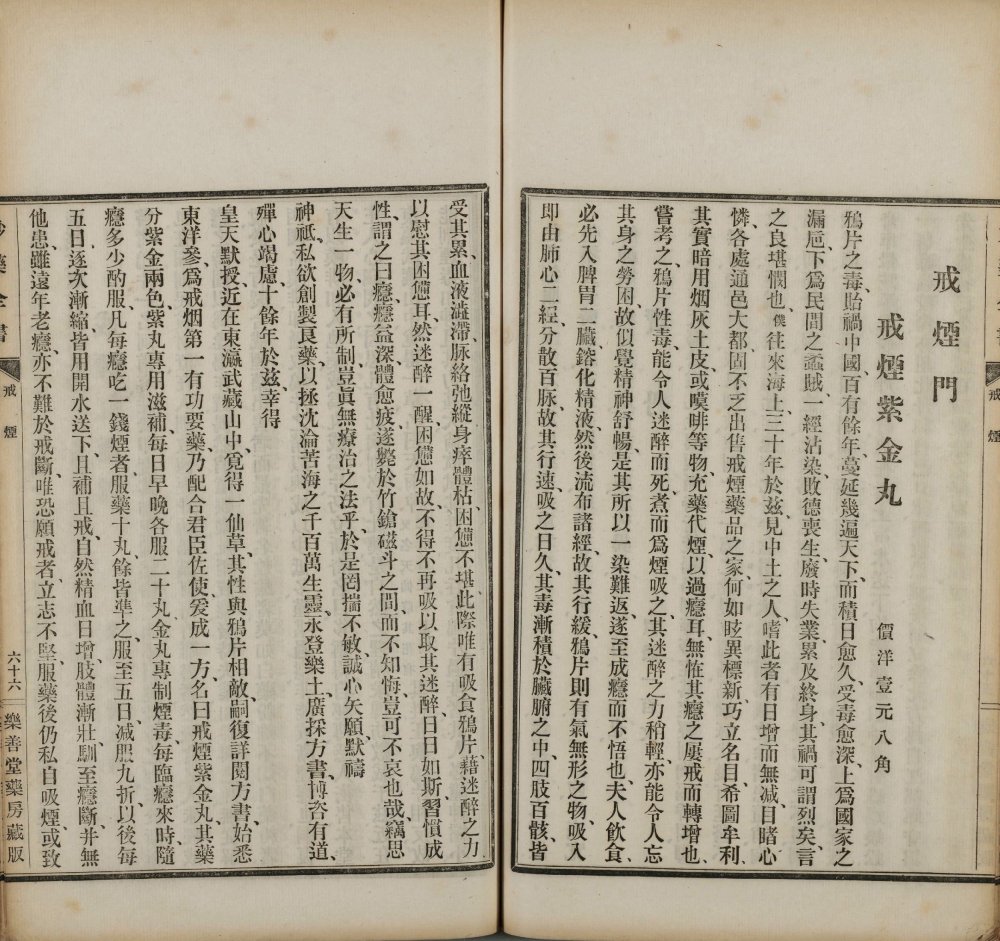 戒煙門
戒煙紫金丸
價洋壹元八角
鴉片之毒貽禍中國、百有餘年蔓延幾遍天下、而積日愈久、受毒愈深、上爲國家之
漏卮、下爲民間之蟊賊、一經沾染、敗德喪生、廢時失業、累及終身、其禍可謂烈矣、言
之良堪憫也、僕往來海上、三十年於玆、見中土之人、嗜此者有日增而無减、目睹心
憐、各處通邑大都、固不乏出售戒煙藥品之家、何如眩異標新、巧立名目、希圖牟利、
其實暗用烟灰土皮、或嘆啡等物、充藥代煙、以過癮耳、無惟其癮之屢戒而轉增也、
嘗考之、鴉片性毒、能令人迷醉而死、煮而爲煙吸之、其迷醉之力稍輕、亦能令人忘
其身之勞困、故似覺精神舒暢、是其所以一染難返、遂至成癮而不悟也、夫人飲食
必先入脾胃二臟、鎔化精液、然後流布諸經、故其行緩、鴉片則有氣無形之物、吸入
即由肺心二經、分散百脉、故其行速、吸之日久、其毒漸積於臟腑之中、四肢百骸、皆
戒煙
受其累、血液澁滯、脉絡弛縱、身瘁體枯、困憊不堪、此際唯有吸食鴉片、藉迷醉之力
以慰其困憊耳、然迷醉一醒、困憊如故、不得不再吸以取其迷醉、日日如斯、習慣成
性、謂之曰癮、癮益深、體愈疲、遂斃於竹鎗磁斗之間、而不知悔、豈可不哀也哉、竊思
天生一物、必有所制、豈眞無療治之法乎、於是罔揣不敏、誠心矢願、默禱
神祇、私欲創製良藥、以拯沈淪苦海之千百萬生靈、永登樂土、廣採方書、博咨有道、
殫心竭慮、十餘年於玆、幸得
皇天默授、近在東瀛武藏山中、覓得一仙草、其性與鴉片相敵、嗣復詳閱方書、始悉
東洋參、爲戒烟第一有功要藥、乃配合君臣佐使、爰成一方、名曰戒煙紫金丸、其藥
分紫金兩色、紫丸專用滋補、每日早晚各服二十丸、金丸專制煙毒、每臨癮來時、隨
癮多少酌服、凡每癮吃一錢煙者、服藥十丸、餘皆準之、服至五日、减服九折、以後每
五日逐次漸縮、皆用開水送下、且補且戒、自然精血日增、肢體漸壯、馴至癮斷、并無
他患、雖遠年老癮、亦不難於戒斷、唯恐願戒者、立志不堅、服藥後仍私自吸煙、或致
藥全書
戒煙
六十六
樂善堂藥房藏版